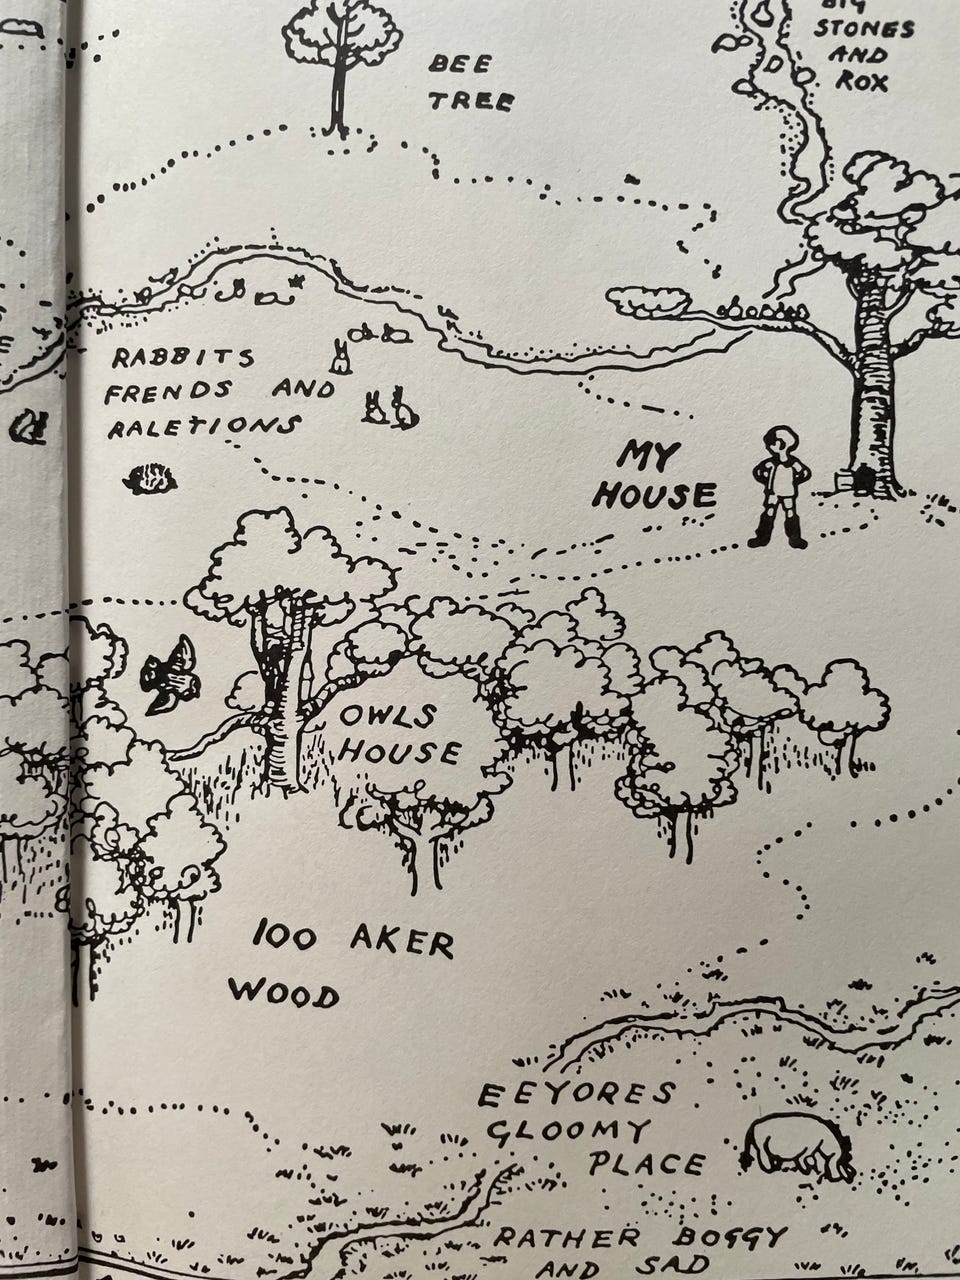 BIG
STONES
AND
ROX
BEE
TREE
RABBITS
FRENDS AND
RALETIONS
MY
HOUSE
OWLS
HOUSE
100 AKER
WOOD
EEYORES
GLOOMY
PLACE
RATHER BOGGY
AND SAD